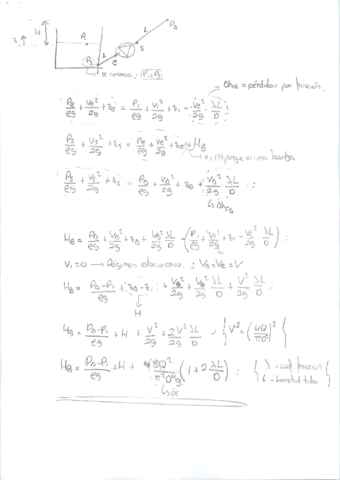 H
P1
P0
L
L
e
s
Se conserva: P1 = P2
Δhe = pérdidas por fricción
Pe/ρg + Ve²/2g + ze = P1/ρg + V1²/2g + z1 - Ve²/2g λL/D
Ps/ρg + Vs²/2g + zs = Pe/ρg + Ve²/2g + ze + HB
es (+) porque es una bomba
Ps/ρg + Vs²/2g + zs = P0/ρg + V0²/2g + z0 + V0²/2g λL/D ;
HB = P0/ρg + V0²/2g + z0 + V0²/2g λL/D - (P1/ρg + V1²/2g + z1 - Ve²/2g λL/D) ;
V1 = 0 → Régimen estacionario ; V0 = Ve = V
HB = P0-P1/ρg + z0 - z1 + V0²/2g + V0²/2g λL/D + V²/2g λL/D ;
H
HB = P0-P1/ρg + H + V²/2g + 2V²/2g λL/D = { V² = (4Q/πD²)² }
HB = P0-P1/ρg + H + 8Q²/π²D⁴g (1 + 2 λL/D) : { λ = coef. fricción
L = longitud tubo